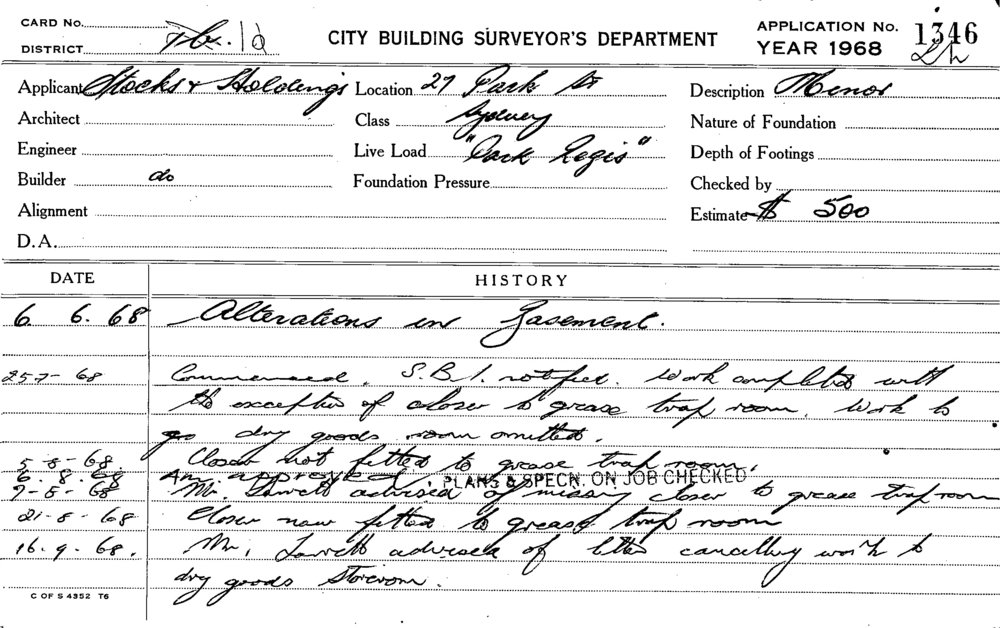 CARD No.
CITY BUILDING SURVEYOR'S DEPARTMENT
APPLICATION No. 1346
DISTRICT 10
YEAR 1968
Applicant Stocks & Holdings Location 27 Park St Description Minor
Architect Class Sydney Nature of Foundation
Engineer Live Load "Park Regis" Depth of Footings
Builder do Foundation Pressure Checked by
Alignment Estimate $ 500
D.A.
DATE HISTORY
6. 6. 68 Alterations in Basement.
25-7-68 Commenced. S.B.I. notified. Work completed with
the exception of closer to grease trap room. Work to
dry goods room omitted.
5-8-68 Closer not fitted to grease trap room.
6. 8. 68 Am. approved. PLANS & SPECN. ON JOB CHECKED
7-8-68 Mr. advised of missing closer to grease trap room
21-8-68 Closer now fitted to grease trap room
16. 9. 68. Mr. advised of letter cancelling work to
dry goods storeroom.
C OF S 4352 T6